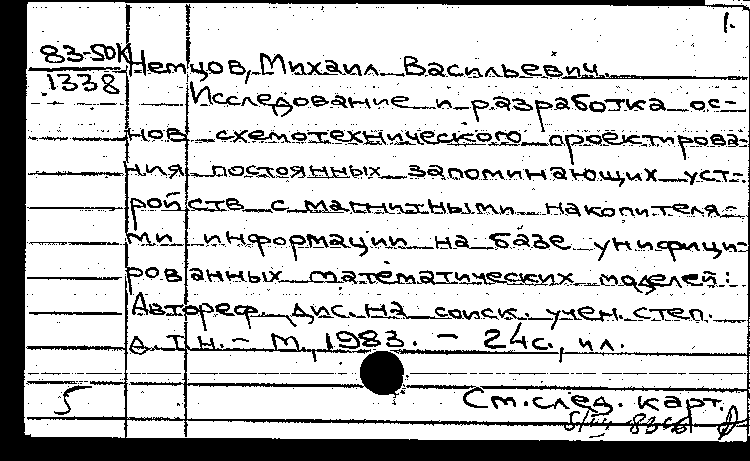 1.
83-50К Немцов, Михаил Васильевич.
1338
Исследование и разработка ос-
нов схемотехнического проектирова-
ния постоянных запоминающих уст-
ройств с магнитными накопителя-
ми информации на базе унифици-
рованных математических моделей:
Автореф. дис. на соиск. учен. степ.
д. т. н. - М., 1983. - 24с., ил.
5
См. след. карт.